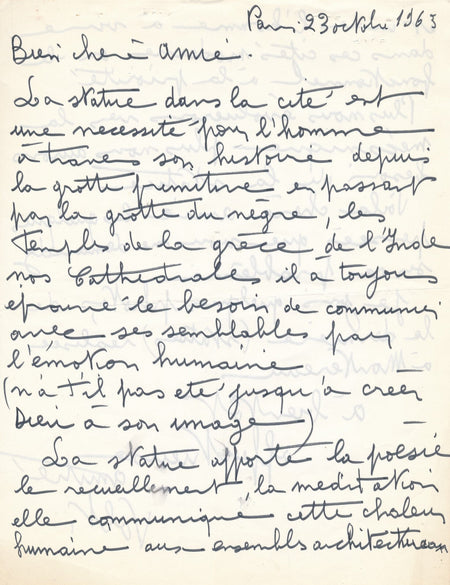 Paris 23 octobre 1963
Bien chère amie.
La statue dans la cité est
une necessité pour l'homme
à travers son histoire depuis
la grotte primitive en passant
par la grotte du nègre, les
temples de la grèce, de l'Inde
nos Cathédrales il à toujours
éprouvé le besoin de communier
avec ses semblables par
l'émotion humaine
(n'a t'il pas eté jusqu'à creer
Dieu à son image)
La statue apporte la poésie
le recueillement, la meditation
elle communique cette chaleur
humaine aux ensembls architecturaux